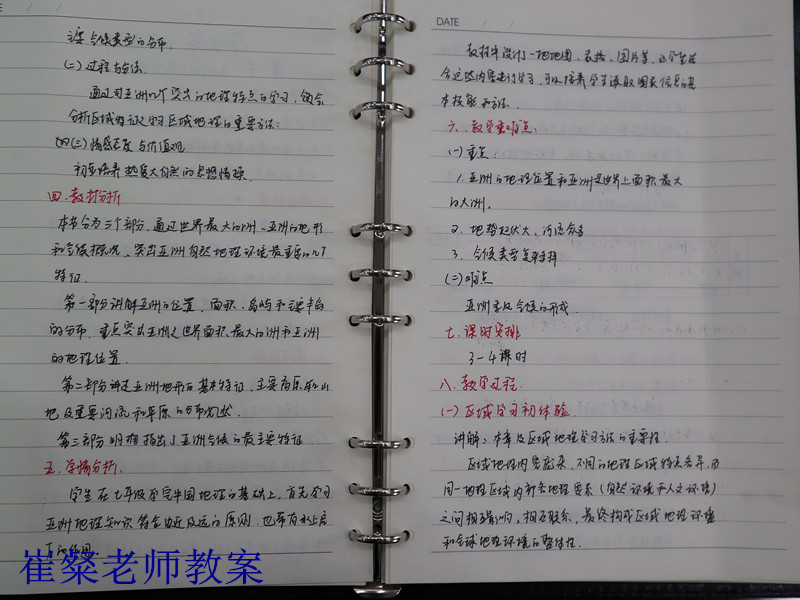 主要气候类型的分布.
(二)过程与方法.
通过对亚洲几个突出的地理特点的学习,领会
分析区域特征及学习区域地理的重要方法:
(三)情感态度与价值观
初步培养热爱大自然的思想情操.
四.教材分析
本节分为三个部分,通过世界最大的洲、亚洲的地形
和气候概况,突出亚洲自然地理环境最主要的几个
特征.
第一部分讲解亚洲的位置、面积、岛屿和主要半岛
的分布.重点突出亚洲是世界面积最大的洲和亚洲
的地理位置.
第二部分讲述亚洲地形的基本特征,主要高原和山
地及重要河流和平原的分布现状.
第三部分明确指出了亚洲气候的最主要特征
五.学情分析.
学生在七年级学完中国地理的基础上,首先学习
亚洲地理知识符合由近及远的原则.也带有承上启
下的作用。
崔粲老师教案
DATE / /
教材中设计一些地图、表格、图片等,让学生结
合这些内容进行学习,可以培养学生读取图表信息的基
本技能和方法.
六.教学重难点:
(一)重点:
1.亚洲的地理位置和亚洲是世界上面积最大
的大洲。
2.地势起伏大,河流众多
3.气候类型复杂多样
(二)难点
亚洲季风气候的形成.
七.课时安排
3-4课时
八.教学过程.
(一)区域学习初体验
讲解:本章及区域地理学习方法的重要性.
区域地理内容庞杂,不同的地理区域特点各异,而
同一地理区域内部各地理要素(自然环境和人文环境)
之间相互影响,相互联系,最终构成区域地理环境
和全球地理环境的整体性.